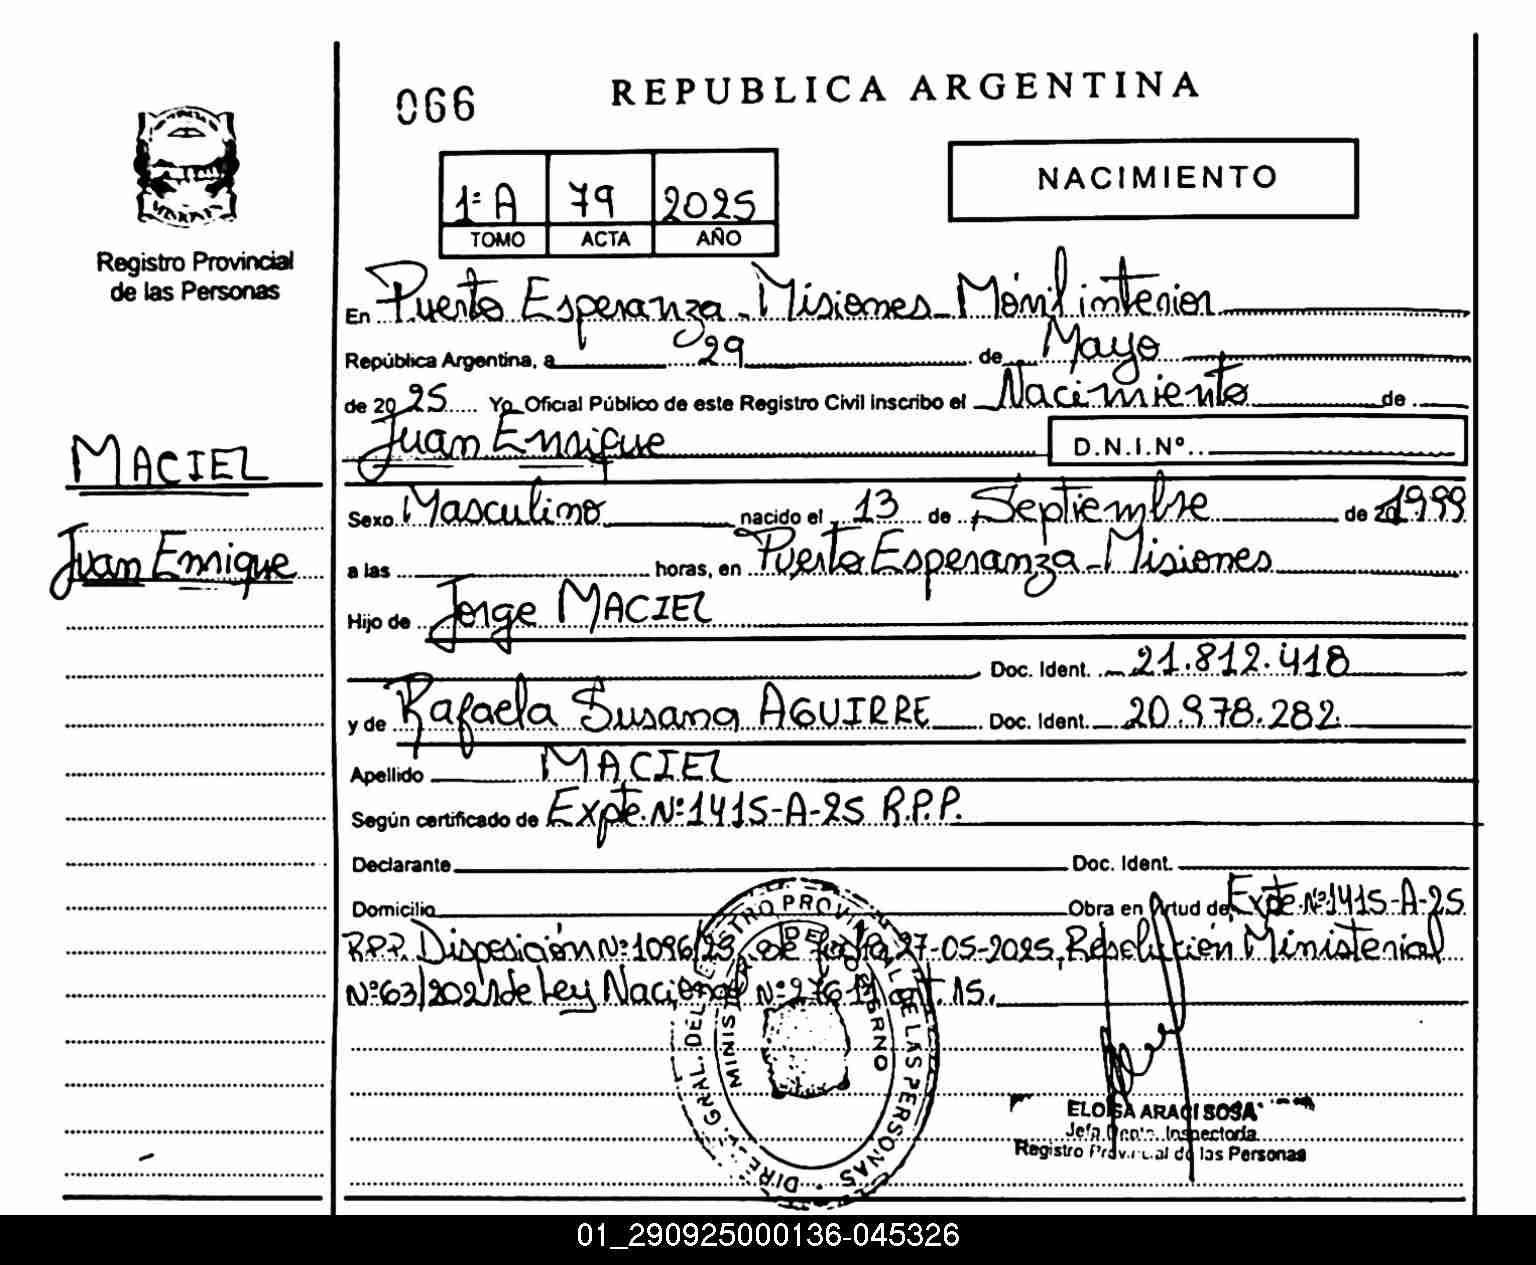 066
REPUBLICA ARGENTINA
NACIMIENTO
1ª A 79 2025
TOMO ACTA AÑO
Registro Provincial
de las Personas
En Puerto Esperanza - Misiones - Móvil interior
República Argentina, a 29 de Mayo
de 2025 Yo Oficial Público de este Registro Civil inscribo el Nacimiento de
Juan Enrique D.N.I.Nº
MACIEL
Juan Enrique
Sexo Masculino nacido el 13 de Septiembre de 20 1999
a las horas, en Puerto Esperanza - Misiones
Hijo de Jorge MACIEL
Doc. Ident. 21.812.418
y de Rafaela Susana AGUIRRE Doc. Ident. 20.978.282
Apellido MACIEL
Según certificado de Expte. Nº 1415-A-25 R.P.P.
Declarante Doc. Ident.
Domicilio Obra en virtud de Expte. Nº 1415-A-25
R.P.P. Disposición Nº 1096/25 de fecha 27-05-2025, Resolución Ministerial
Nº 63/2021 de Ley Nacional Nº 27611 art. 15.
DIRE GRAL. DEL REGISTRO PROVINCIAL DE LAS PERSONAS
MINISTERIO DE GOBIERNO
ELOISA ARACI SOSA
Jefa Depto. Inspectoría
Registro Provincial de las Personas
01_290925000136-045326